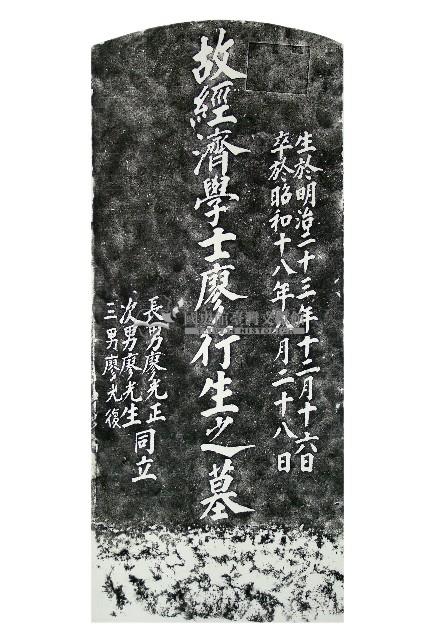 生於明治二十三年十二月十六日
卒於昭和十八年八月二十八日
故經濟學士廖行生之墓
長男廖光正
次男廖光生
三男廖光復
同立